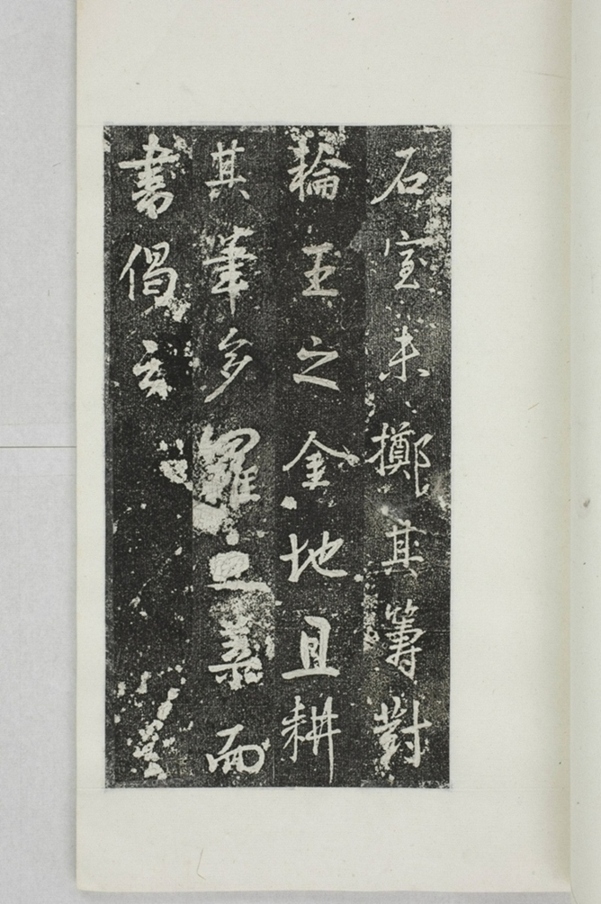 石室未擲其籌對
輪王之金地且耕
其筆多羅之葉而
書偈云